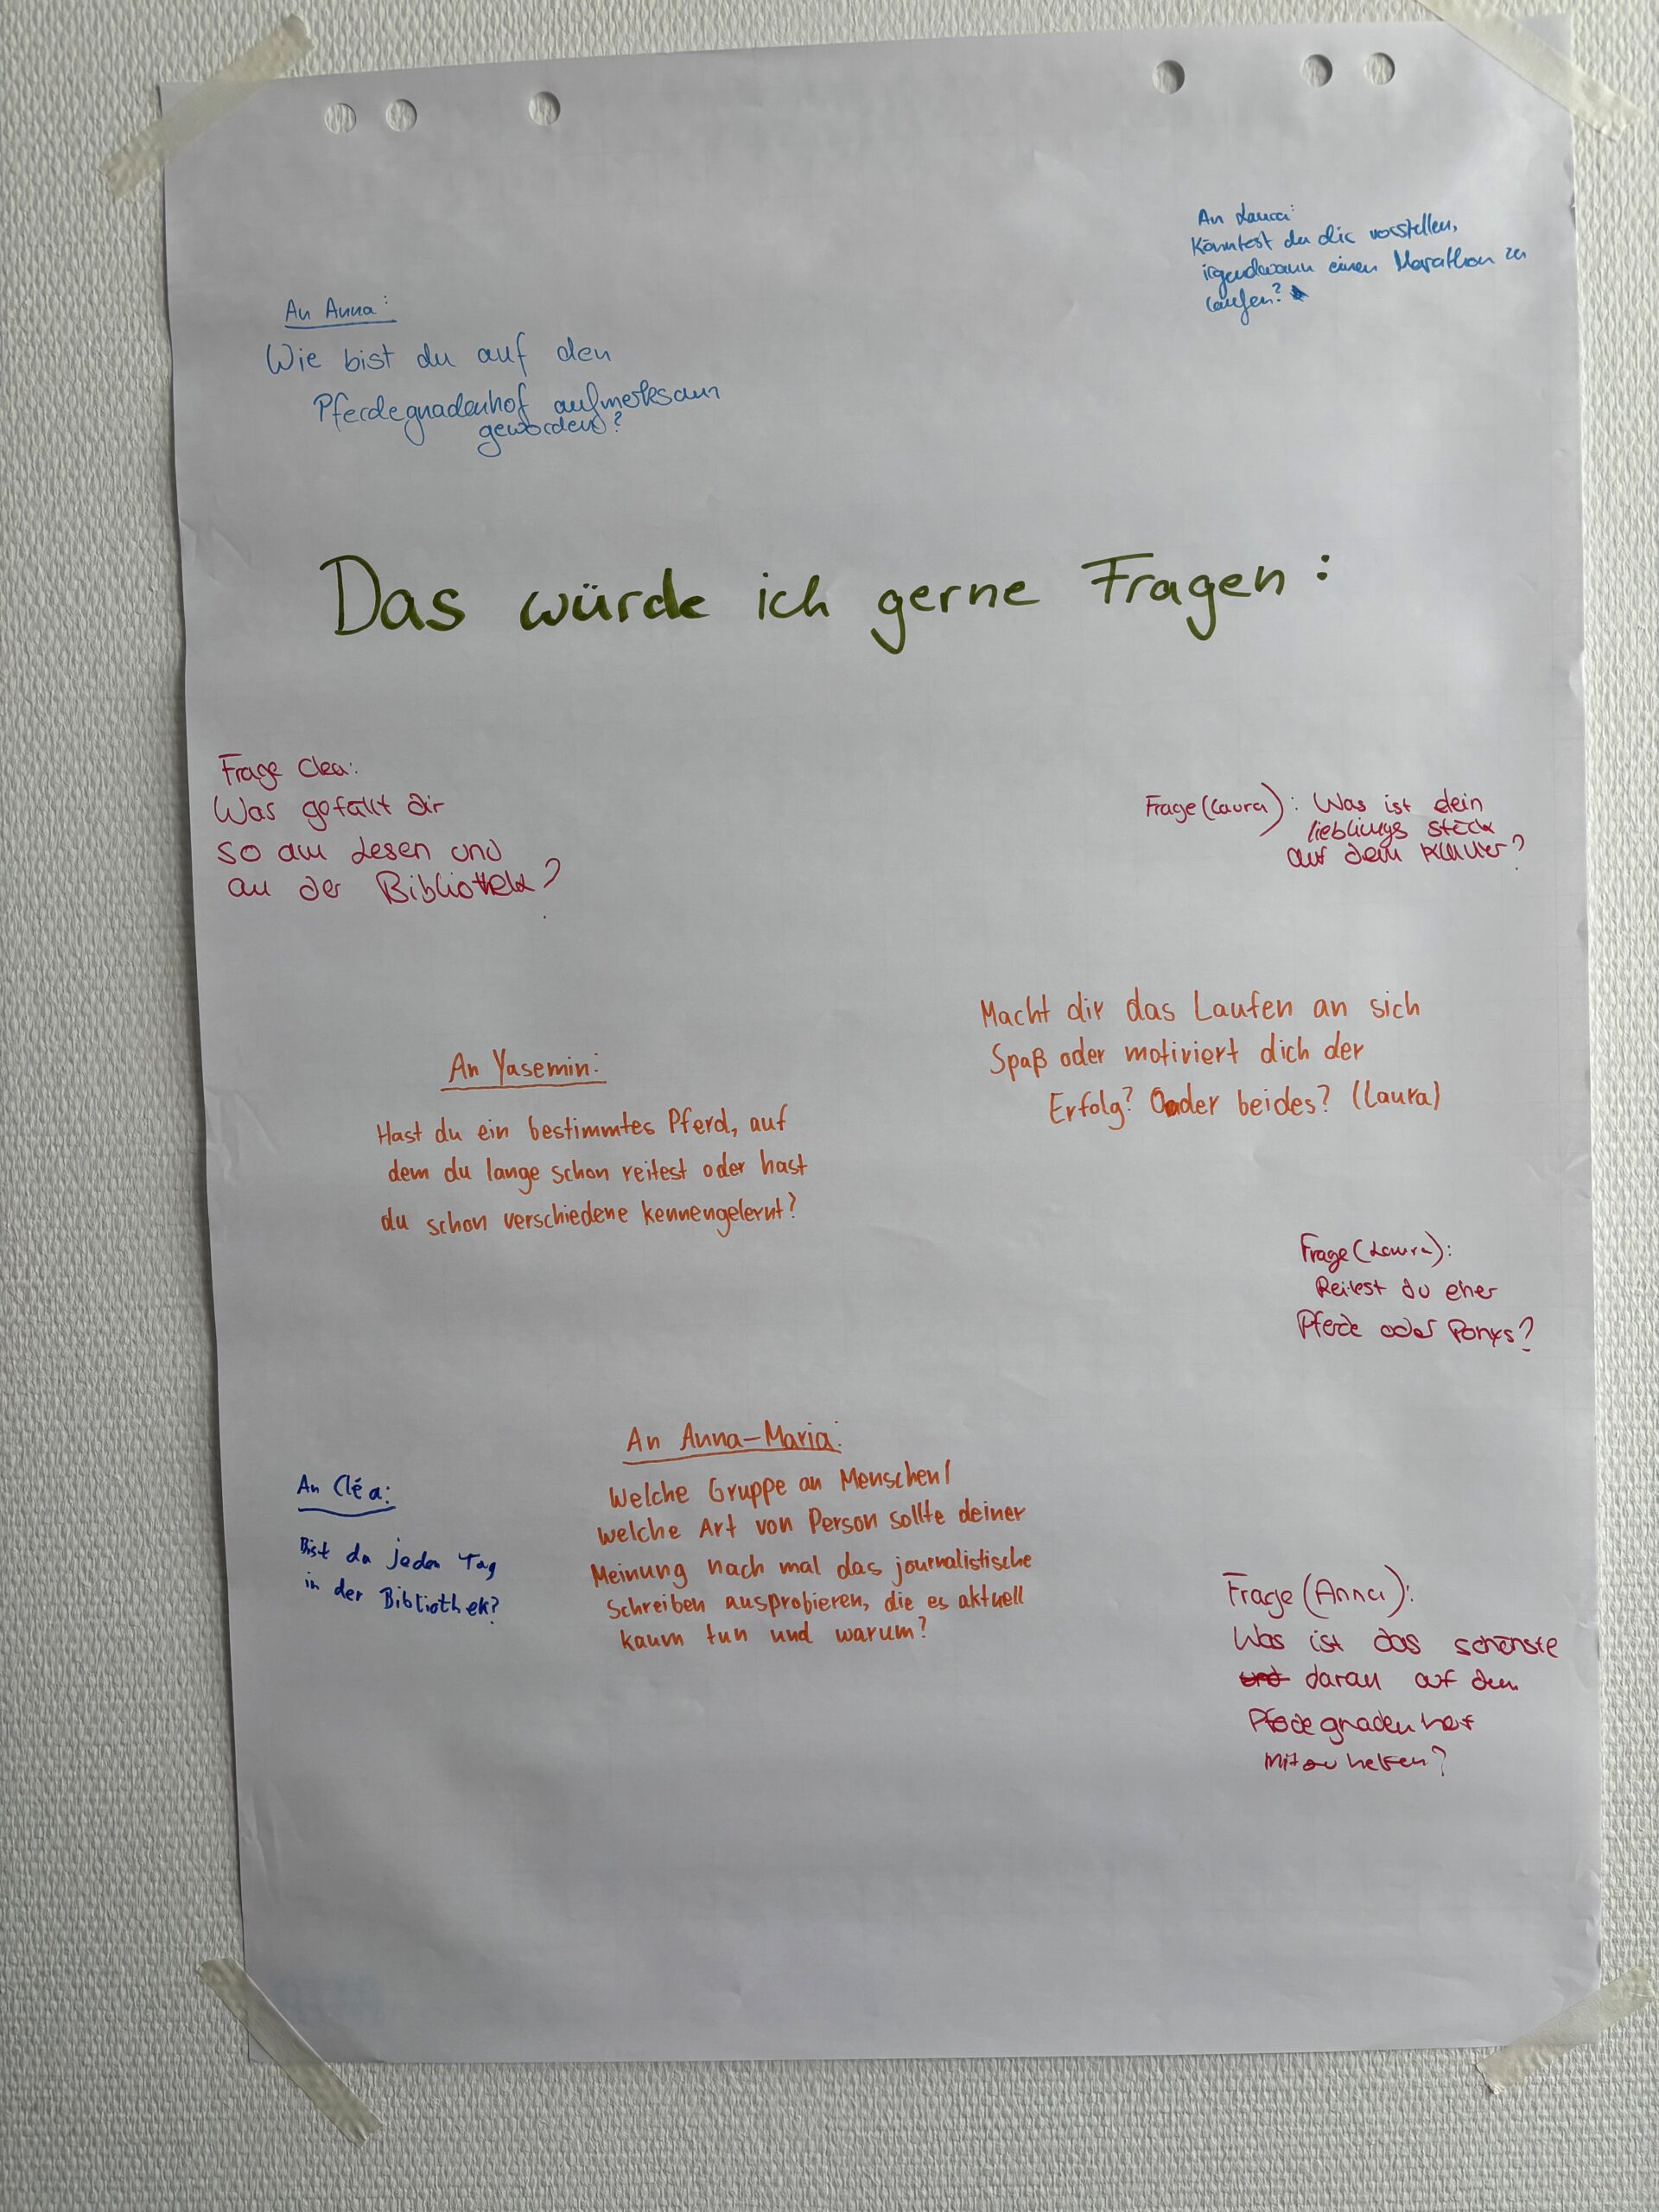 An Laura:
Könntest du dir vorstellen,
irgendwann einen Marathon zu
laufen?
An Anna:
Wie bist du auf den
Pferdegnadenhof aufmerksam
geworden?
Das würde ich gerne Fragen:
Frage Clea:
Was gefällt dir
so am Lesen und
an der Bibliothek?
Frage (Laura): Was ist dein
lieblings stück
auf dem Klavier?
Macht dir das Laufen an sich
Spaß oder motiviert dich der
Erfolg? Oder beides? (Laura)
An Yasemin:
Hast du ein bestimmtes Pferd, auf
dem du lange schon reitest oder hast
du schon verschiedene kennengelernt?
Frage (Laura):
Reitest du eher
Pferde oder Ponys?
An Anna-Maria:
Welche Gruppe an Menschen/
welche Art von Person sollte deiner
Meinung nach mal das journalistische
Schreiben ausprobieren, die es aktuell
kaum tun und warum?
An Cléa:
Bist du jeden Tag
in der Bibliothek?
Frage (Anna):
Was ist das schönste
und daran auf dem
Pferdegnadenhof
mitzuhelfen?